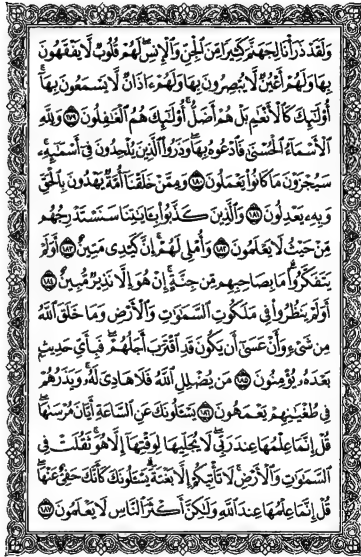 وَلَقَدْ ذَرَأْنَا لِجَهَنَّمَ كَثِيرًا مِّنَ ٱلْجِنِّ وَٱلْإِنسِ ۖ لَهُمْ قُلُوبٌ لَّا يَفْقَهُونَ
بِهَا وَلَهُمْ أَعْيُنٌ لَّا يُبْصِرُونَ بِهَا وَلَهُمْ ءَاذَانٌ لَّا يَسْمَعُونَ بِهَآ ۚ
أُو۟لَٰٓئِكَ كَٱلْأَنْعَٰمِ بَلْ هُمْ أَضَلُّ ۚ أُو۟لَٰٓئِكَ هُمُ ٱلْغَٰفِلُونَ ١٧٩ وَلِلَّهِ
ٱلْأَسْمَآءُ ٱلْحُسْنَىٰ فَٱدْعُوهُ بِهَا ۖ وَذَرُوا۟ ٱلَّذِينَ يُلْحِدُونَ فِىٓ أَسْمَٰٓئِهِۦ ۚ
سَيُجْزَوْنَ مَا كَانُوا۟ يَعْمَلُونَ ١٨٠ وَمِمَّنْ خَلَقْنَآ أُمَّةٌ يَهْدُونَ بِٱلْحَقِّ
وَبِهِۦ يَعْدِلُونَ ١٨١ وَٱلَّذِينَ كَذَّبُوا۟ بِـَٔايَٰتِنَا سَنَسْتَدْرِجُهُم
مِّنْ حَيْثُ لَا يَعْلَمُونَ ١٨٢ وَأُمْلِى لَهُمْ ۚ إِنَّ كَيْدِى مَتِينٌ ١٨٣ أَوَلَمْ
يَتَفَكَّرُوا۟ ۗ مَا بِصَاحِبِهِم مِّن جِنَّةٍ ۚ إِنْ هُوَ إِلَّا نَذِيرٌ مُّبِينٌ ١٨٤
أَوَلَمْ يَنظُرُوا۟ فِى مَلَكُوتِ ٱلسَّمَٰوَٰتِ وَٱلْأَرْضِ وَمَا خَلَقَ ٱللَّهُ
مِن شَىْءٍ وَأَنْ عَسَىٰٓ أَن يَكُونَ قَدِ ٱقْتَرَبَ أَجَلُهُمْ ۖ فَبِأَىِّ حَدِيثٍۭ
بَعْدَهُۥ يُؤْمِنُونَ ١٨٥ مَن يُضْلِلِ ٱللَّهُ فَلَا هَادِىَ لَهُۥ ۚ وَيَذَرُهُمْ
فِى طُغْيَٰنِهِمْ يَعْمَهُونَ ١٨٦ يَسْـَٔلُونَكَ عَنِ ٱلسَّاعَةِ أَيَّانَ مُرْسَىٰهَا ۖ
قُلْ إِنَّمَا عِلْمُهَا عِندَ رَبِّى ۖ لَا يُجَلِّيهَا لِوَقْتِهَآ إِلَّا هُوَ ۚ ثَقُلَتْ فِى
ٱلسَّمَٰوَٰتِ وَٱلْأَرْضِ ۚ لَا تَأْتِيكُمْ إِلَّا بَغْتَةً ۗ يَسْـَٔلُونَكَ كَأَنَّكَ حَفِىٌّ عَنْهَا ۖ
قُلْ إِنَّمَا عِلْمُهَا عِندَ ٱللَّهِ وَلَٰكِنَّ أَكْثَرَ ٱلنَّاسِ لَا يَعْلَمُونَ ١٨٧